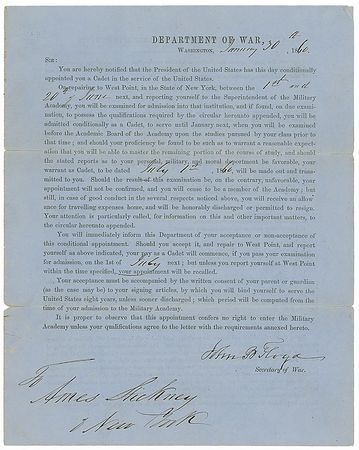 DEPARTMENT OF WAR,
WASHINGTON, January 30th, 1860.
SIR:
You are hereby notified that the President of the United States has this day conditionally
appointed you a Cadet in the service of the United States.
On repairing to West Point, in the State of New York, between the 1st and
20th of June next, and reporting yourself to the Superintendent of the Military
Academy, you will be examined for admission into that institution, and if found, on due exami-
nation, to possess the qualifications required by the circular hereunto appended, you will be
admitted conditionally as a Cadet, to serve until January next, when you will be examined
before the Academic Board of the Academy upon the studies pursued by your class prior to
that time; and should your proficiency be found to be such as to warrant a reasonable expect-
ation that you will be able to master the remaining portion of the course of study, and should
the stated reports as to your personal, military, and moral deportment be favorable, your
warrant as Cadet, to be dated July 1st 1860, will be made out and trans-
mitted to you. Should the result of this examination be, on the contrary, unfavorable, your
appointment will not be confirmed, and you will cease to be a member of the Academy; but
still, in case of good conduct in the several respects noticed above, you will receive an allow-
ance for travelling expenses home, and will be honorably discharged or permitted to resign.
Your attention is particularly called, for information on this and other important matters, to
the circular hereunto appended.
You will immediately inform this Department of your acceptance or non-acceptance of
this conditional appointment. Should you accept it, and repair to West Point, and report
yourself as above indicated, your pay as a Cadet will commence, if you pass your examination
for admission, on the 1st of July next; but unless you report yourself at West Point
within the time specified, your appointment will be recalled.
Your acceptance must be accompanied by the written consent of your parent or guardian
(as the case may be) to your signing articles, by which you will bind yourself to serve the
United States eight years, unless sooner discharged; which period will be computed from the
time of your admission to the Military Academy.
It is proper to observe that this appointment confers no right to enter the Military
Academy unless your qualifications agree to the letter with the requirements annexed hereto.
John B Floyd
Secretary of War.
To
Amos Stickney
New York